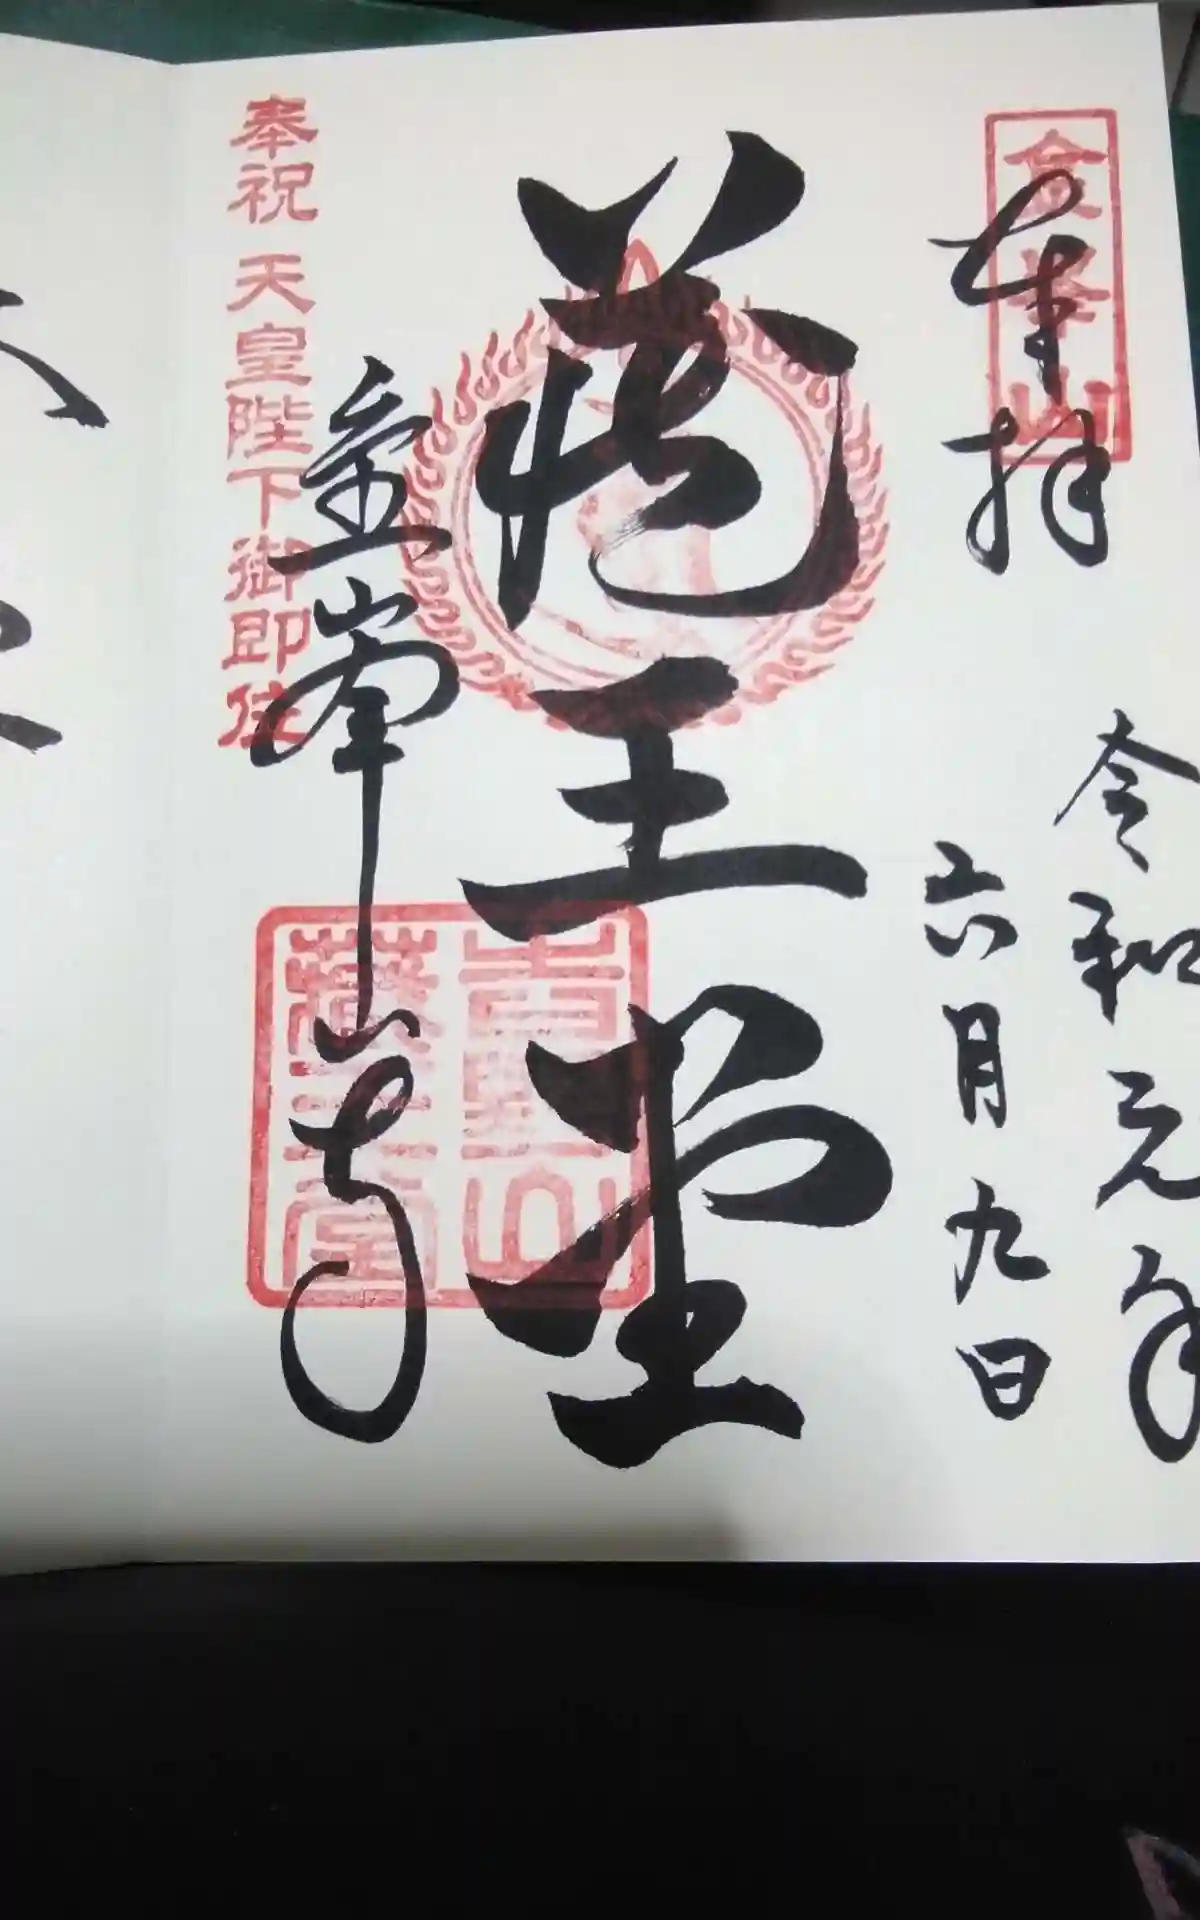 令和元年
六月九日
金峯山
奉拝
蔵王堂
金峯山寺
吉野山
蔵王堂
奉祝 天皇陛下御即位